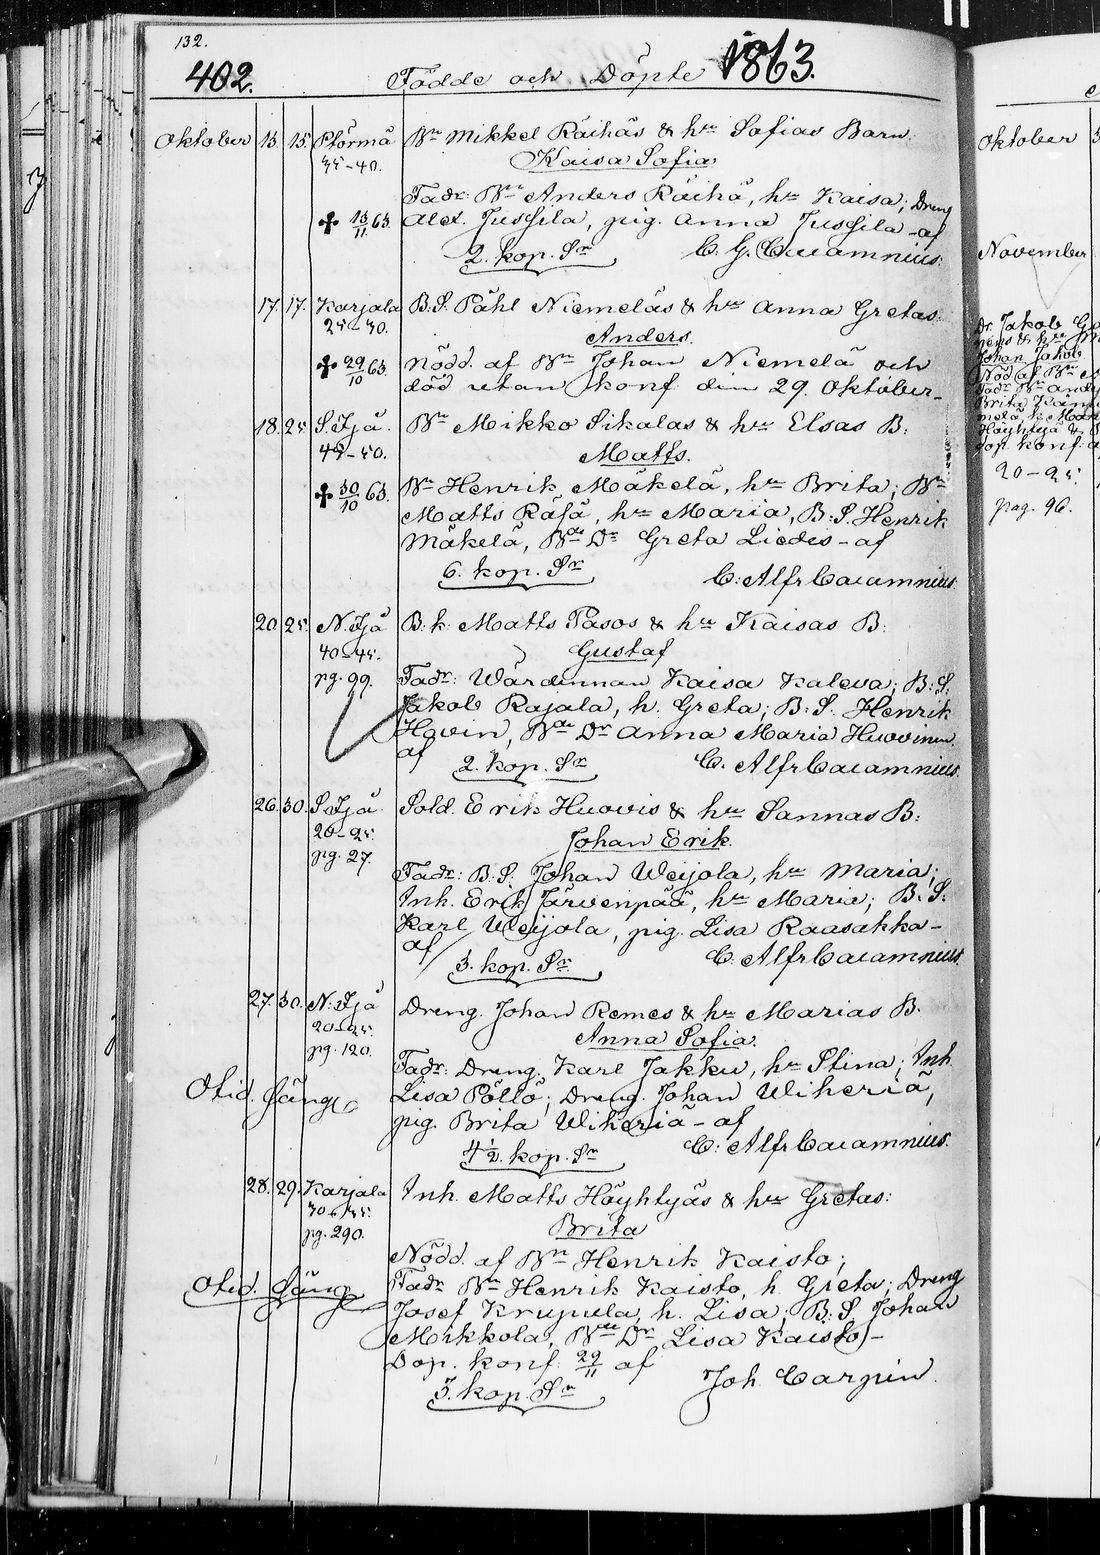 132.
402. Födde och Döpte 1863.
Oktober 13. 15. Störmä Bn Mikkel Räihäs & hru Sofias Barn:
35-40. Kaisa Sofia
Fadr: Bn Anders Räihä, hru Kaisa; Dreng
✝ 13/11 63. Alex. Jussila, pig. Anna Jussila - af
2. kop. Sr C. G. Calamnius.
17. 17. Karjala B.S. Påhl Niemeläs & hru Anna Gretas:
25-30. Anders.
✝ 29/10 63. Nödd. af Bn Johan Niemelä och
död utan konf. den 29. Oktober-
18. 25. S. Ijå. Bn Mikko Sikalas & hru Elsas B:
45-50. Matts.
✝ 30/10 63. Bn Henrik Mäkelä, hru Brita; Bn
Matts Räfä, hru Maria, B:S. Henrik
Mäkelä, Bde Dr Greta Liedes - af
6. kop. Sr C: Alfr Calamnius.
20. 25. N. Ijå B:k: Matts Pasos & hru Kaisas B:
40-45. Gustaf
pg. 99. Fadr: Wärdinnan Kaisa Kaleva; B:S:
Jakob Rajala, h. Greta; B:S. Henrik
Hovin, Bde Dr Anna Maria Huovinen.
af 2. kop. Sr C. Alfr Calamnius.
26. 30. S. Ijå Sold. Erik Huovis & hru Sannas B:
20-25. Johan Erik.
pg. 27.
Fadr: B.S. Johan Weijola, hru Maria;
Inh. Erik Järvenpää, hru Maria; B:S.
Karl Weijola, pig. Lisa Raasakka-
af 3. kop. Sr C. Alfr Calamnius.
27. 30. N. Ijå Dreng. Johan Remes & hru Marias B.
20-25. Anna Sofia.
pg. 120.
Fadr: Dreng. Karl Jakku, hru Stina; Inh.
Otid. Säng Lisa Pöllö; Dreng. Johan Wikeriä,
pig. Brita Wikeriä - af
4 1/2. kop. Sr C: Alfr Calamnius.
28. 29. Karjala Inh. Matts Höyhtyäs & hru Gretas:
30-35. Brita
pg. 290.
Nödd. af Bn Henrik Kaisto;
Otid. Säng Fadr Bn Henrik Kaisto, h. Greta; Dreng
Josef Krupula, h. Lisa; B:S. Johan
Mikkola, Bde Dr Lisa Kaisto-
Dop. konf. 29/11 af
3. kop. Sr Joh. Carpin.
Oktober
November
Dr. Jakob
Johan Jakob
Nöd af Bn
Fadr Bn
Brita
Höyhtyä
Dop. konf.
20-25.
pag. 96.